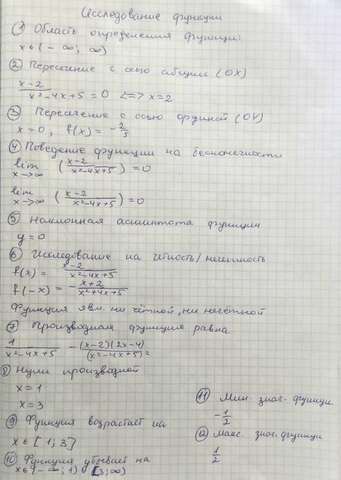 Исследование функции
① Область определения функции:
x ∈ (-∞; ∞)
② Пересечение с осью абсцисс (OX)
x-2 / x²-4x+5 = 0 <=> x=2
③ Пересечение с осью ординат (OY)
x=0, f(x) = -2/5
④ Поведение функции на бесконечности
lim x→∞ (x-2 / x²-4x+5) = 0
lim x→∞ (x-2 / x²-4x+5) = 0
⑤ Наклонная асимптота функции
y=0
⑥ Исследование на чётность/нечётность
f(x) = x-2 / x²-4x+5
f(-x) = - x+2 / x²+4x+5
Функция явл. ни чётной, ни нечётной
⑦ Производная функции равна
1 / x²-4x+5 - (x-2)(2x-4) / (x²-4x+5)²
⑧ Нули производной
x=1
x=3
⑨ Функция возрастает на
x ∈ [1; 3]
⑩ Функция убывает на
x ∈ (-∞; 1) [3; ∞)
⑪ Мин. знач. функции
-1/2
Макс. знач. функции
1/2